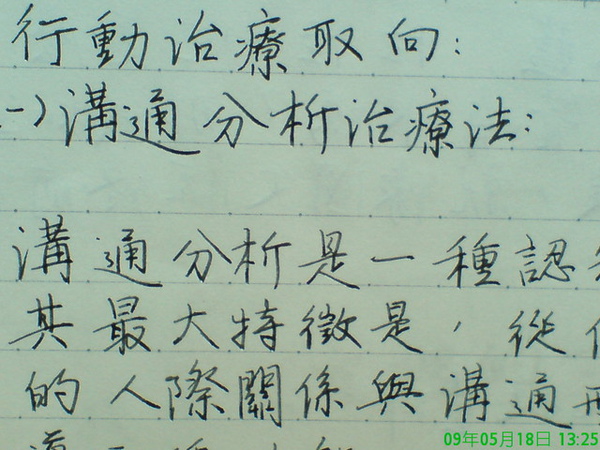 行動治療取向:
一)溝通分析治療法:
溝通分析是一種認
其最大特徵是，從
的人際關係與溝通
09年05月18日 13:25